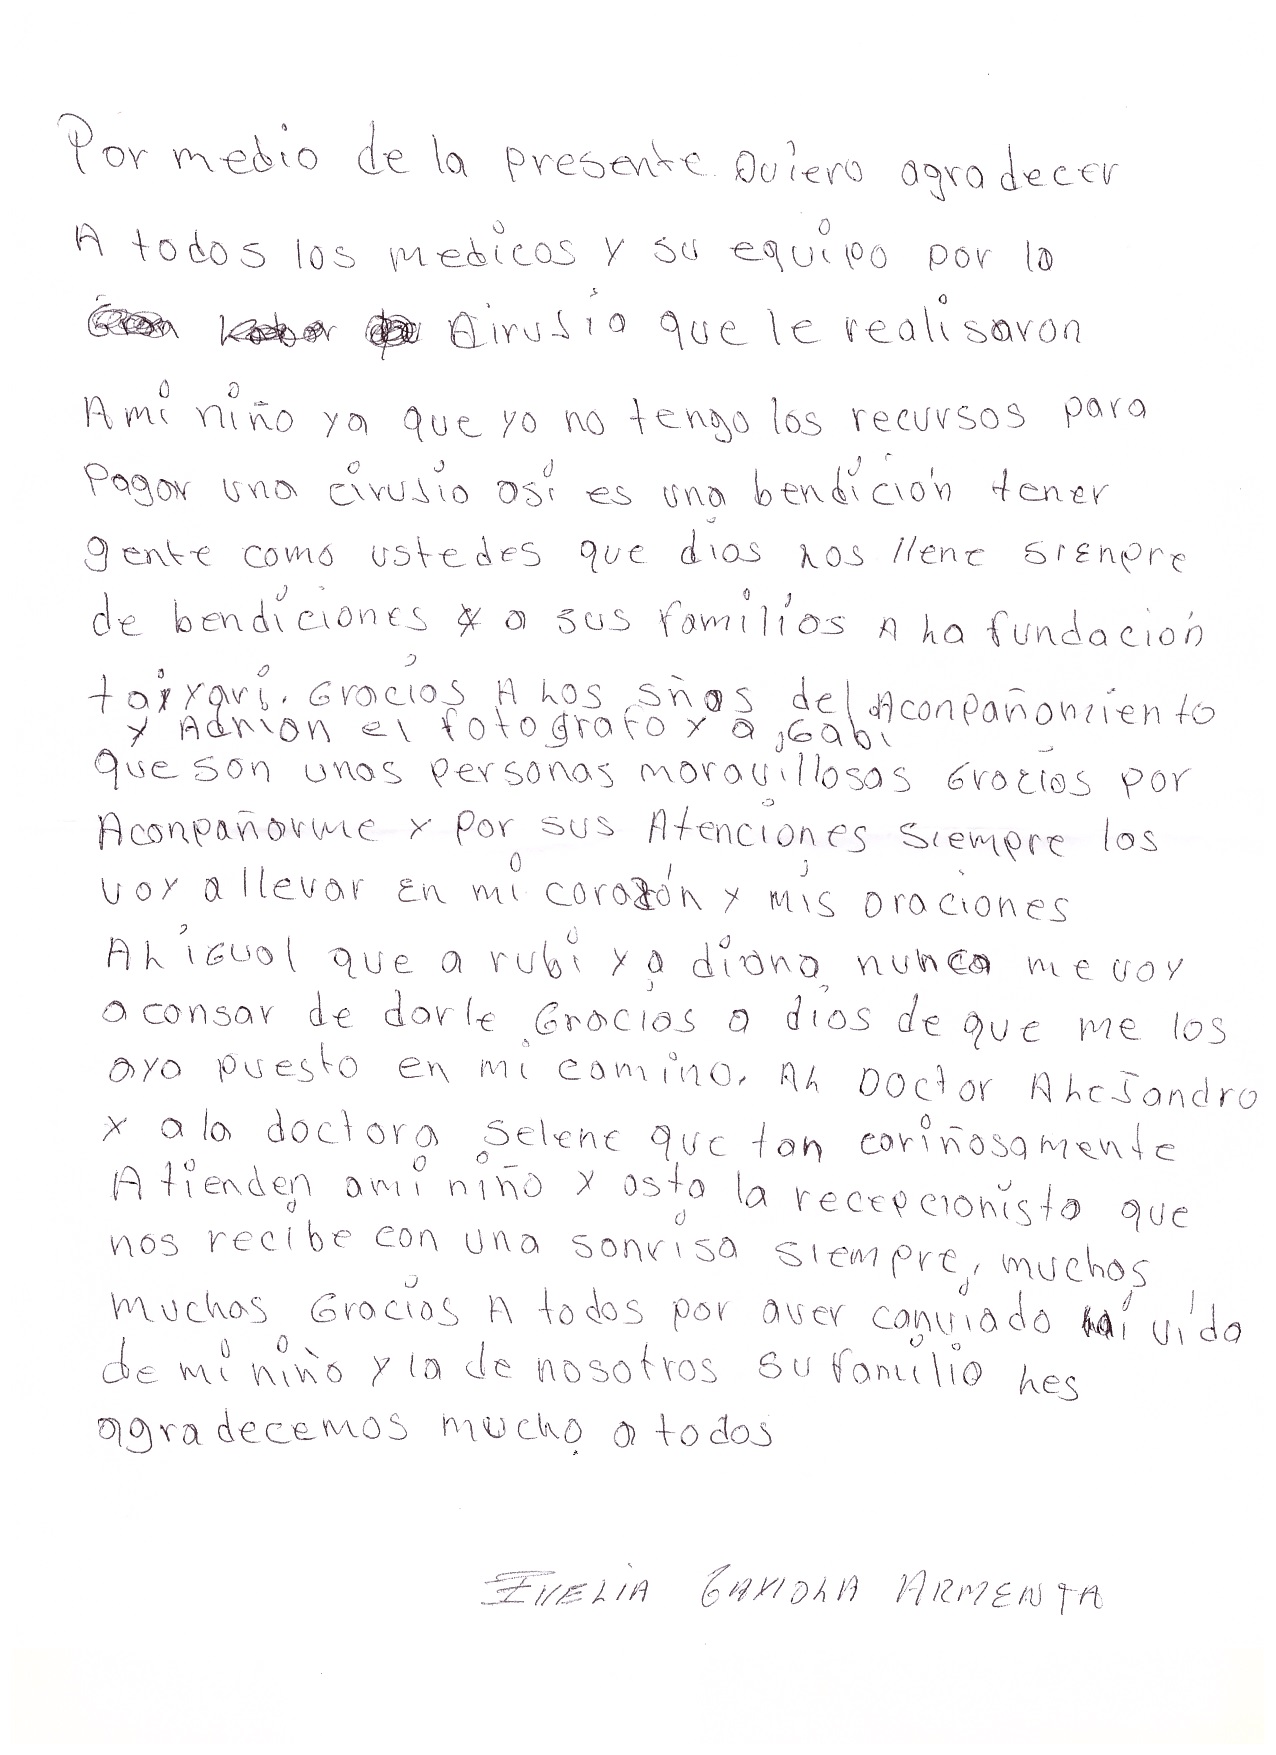 Por medio de la presente Quiero agradecer
A todos los medicos y su equipo por la
cirujia que le realisaron
A mi niño ya que yo no tengo los recursos para
Pagar una cirujia así es una bendición tener
gente como ustedes que dios los llene sienpre
de bendiciones y a sus familias A la fundación
taiyari. Gracias A Los sñas del Aconpañamiento
y Adrian el fotografo y a Gabi
que son unas personas moravillosas Gracias por
Aconpañarme y por sus Atenciones siempre los
voy a llevar en mi corazón y mis oraciones
AL igual que a rubi y a diana nunca me voy
a consar de darle Gracias a dios de que me los
aya puesto en mi camino. AL Doctor ALeJandro
y a la doctora selene que tan cariñosamente
Atienden a mi niño y asta la recepcionista que
nos recibe con una sonrisa siempre, muchas
muchas Gracias A todos por aver canviado vida
de mi niño y la de nosotros su familia les
agradecemos mucho a todos
EVELIA GAXIOLA ARMENTA